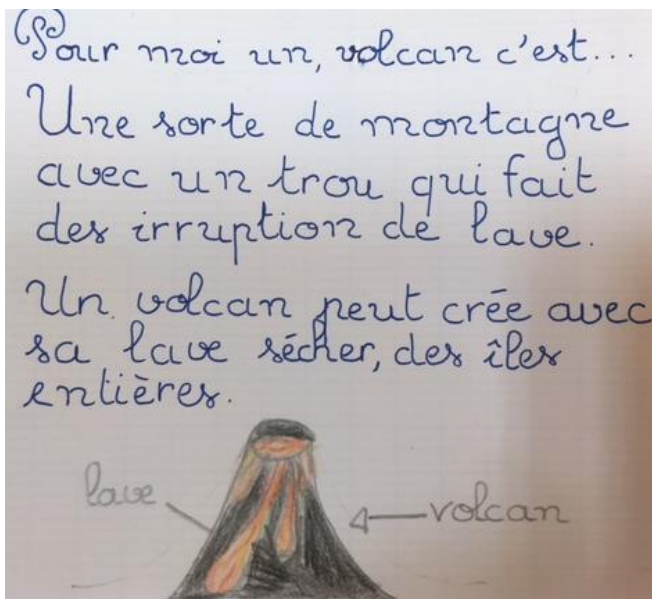 Pour moi un, volcan c'est...
Une sorte de montagne
avec un trou qui fait
des irruption de lave.
Un volcan peut crée avec
sa lave sécher, des îles
entières.
lave
volcan